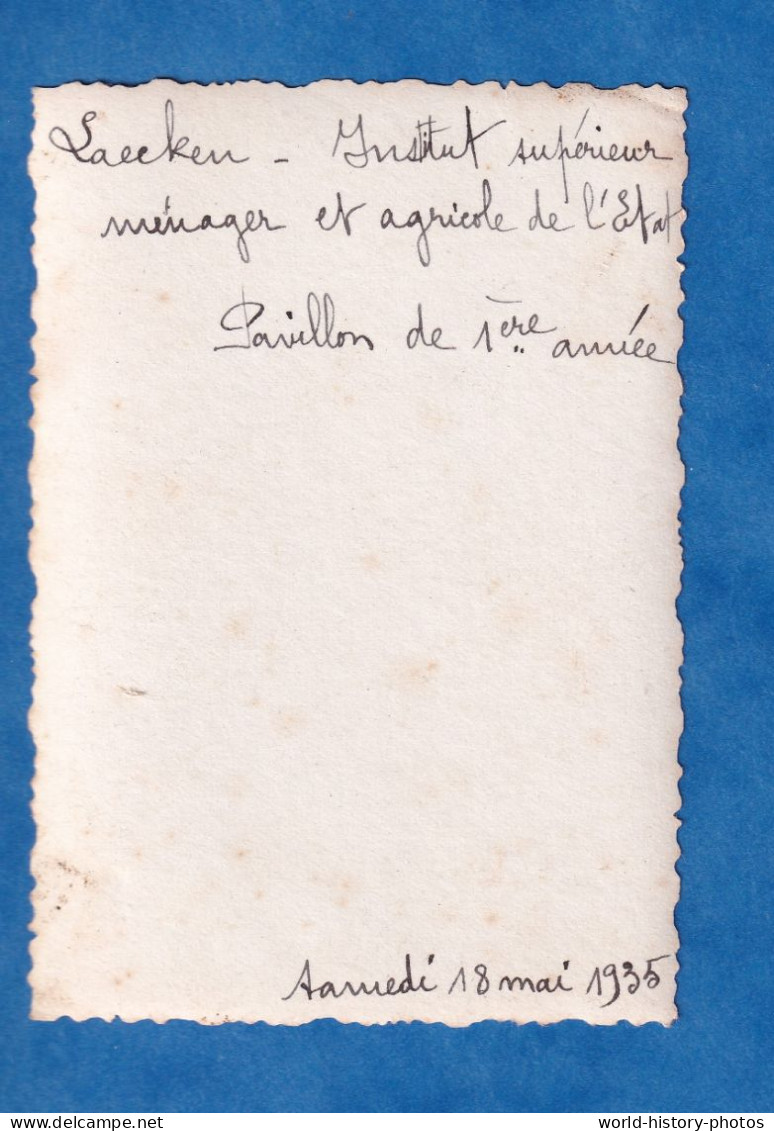 Laecken - Institut supérieur
ménager et agricole de l'Etat
Pavillon de 1ère année
samedi 18 mai 1935
world-history-photos